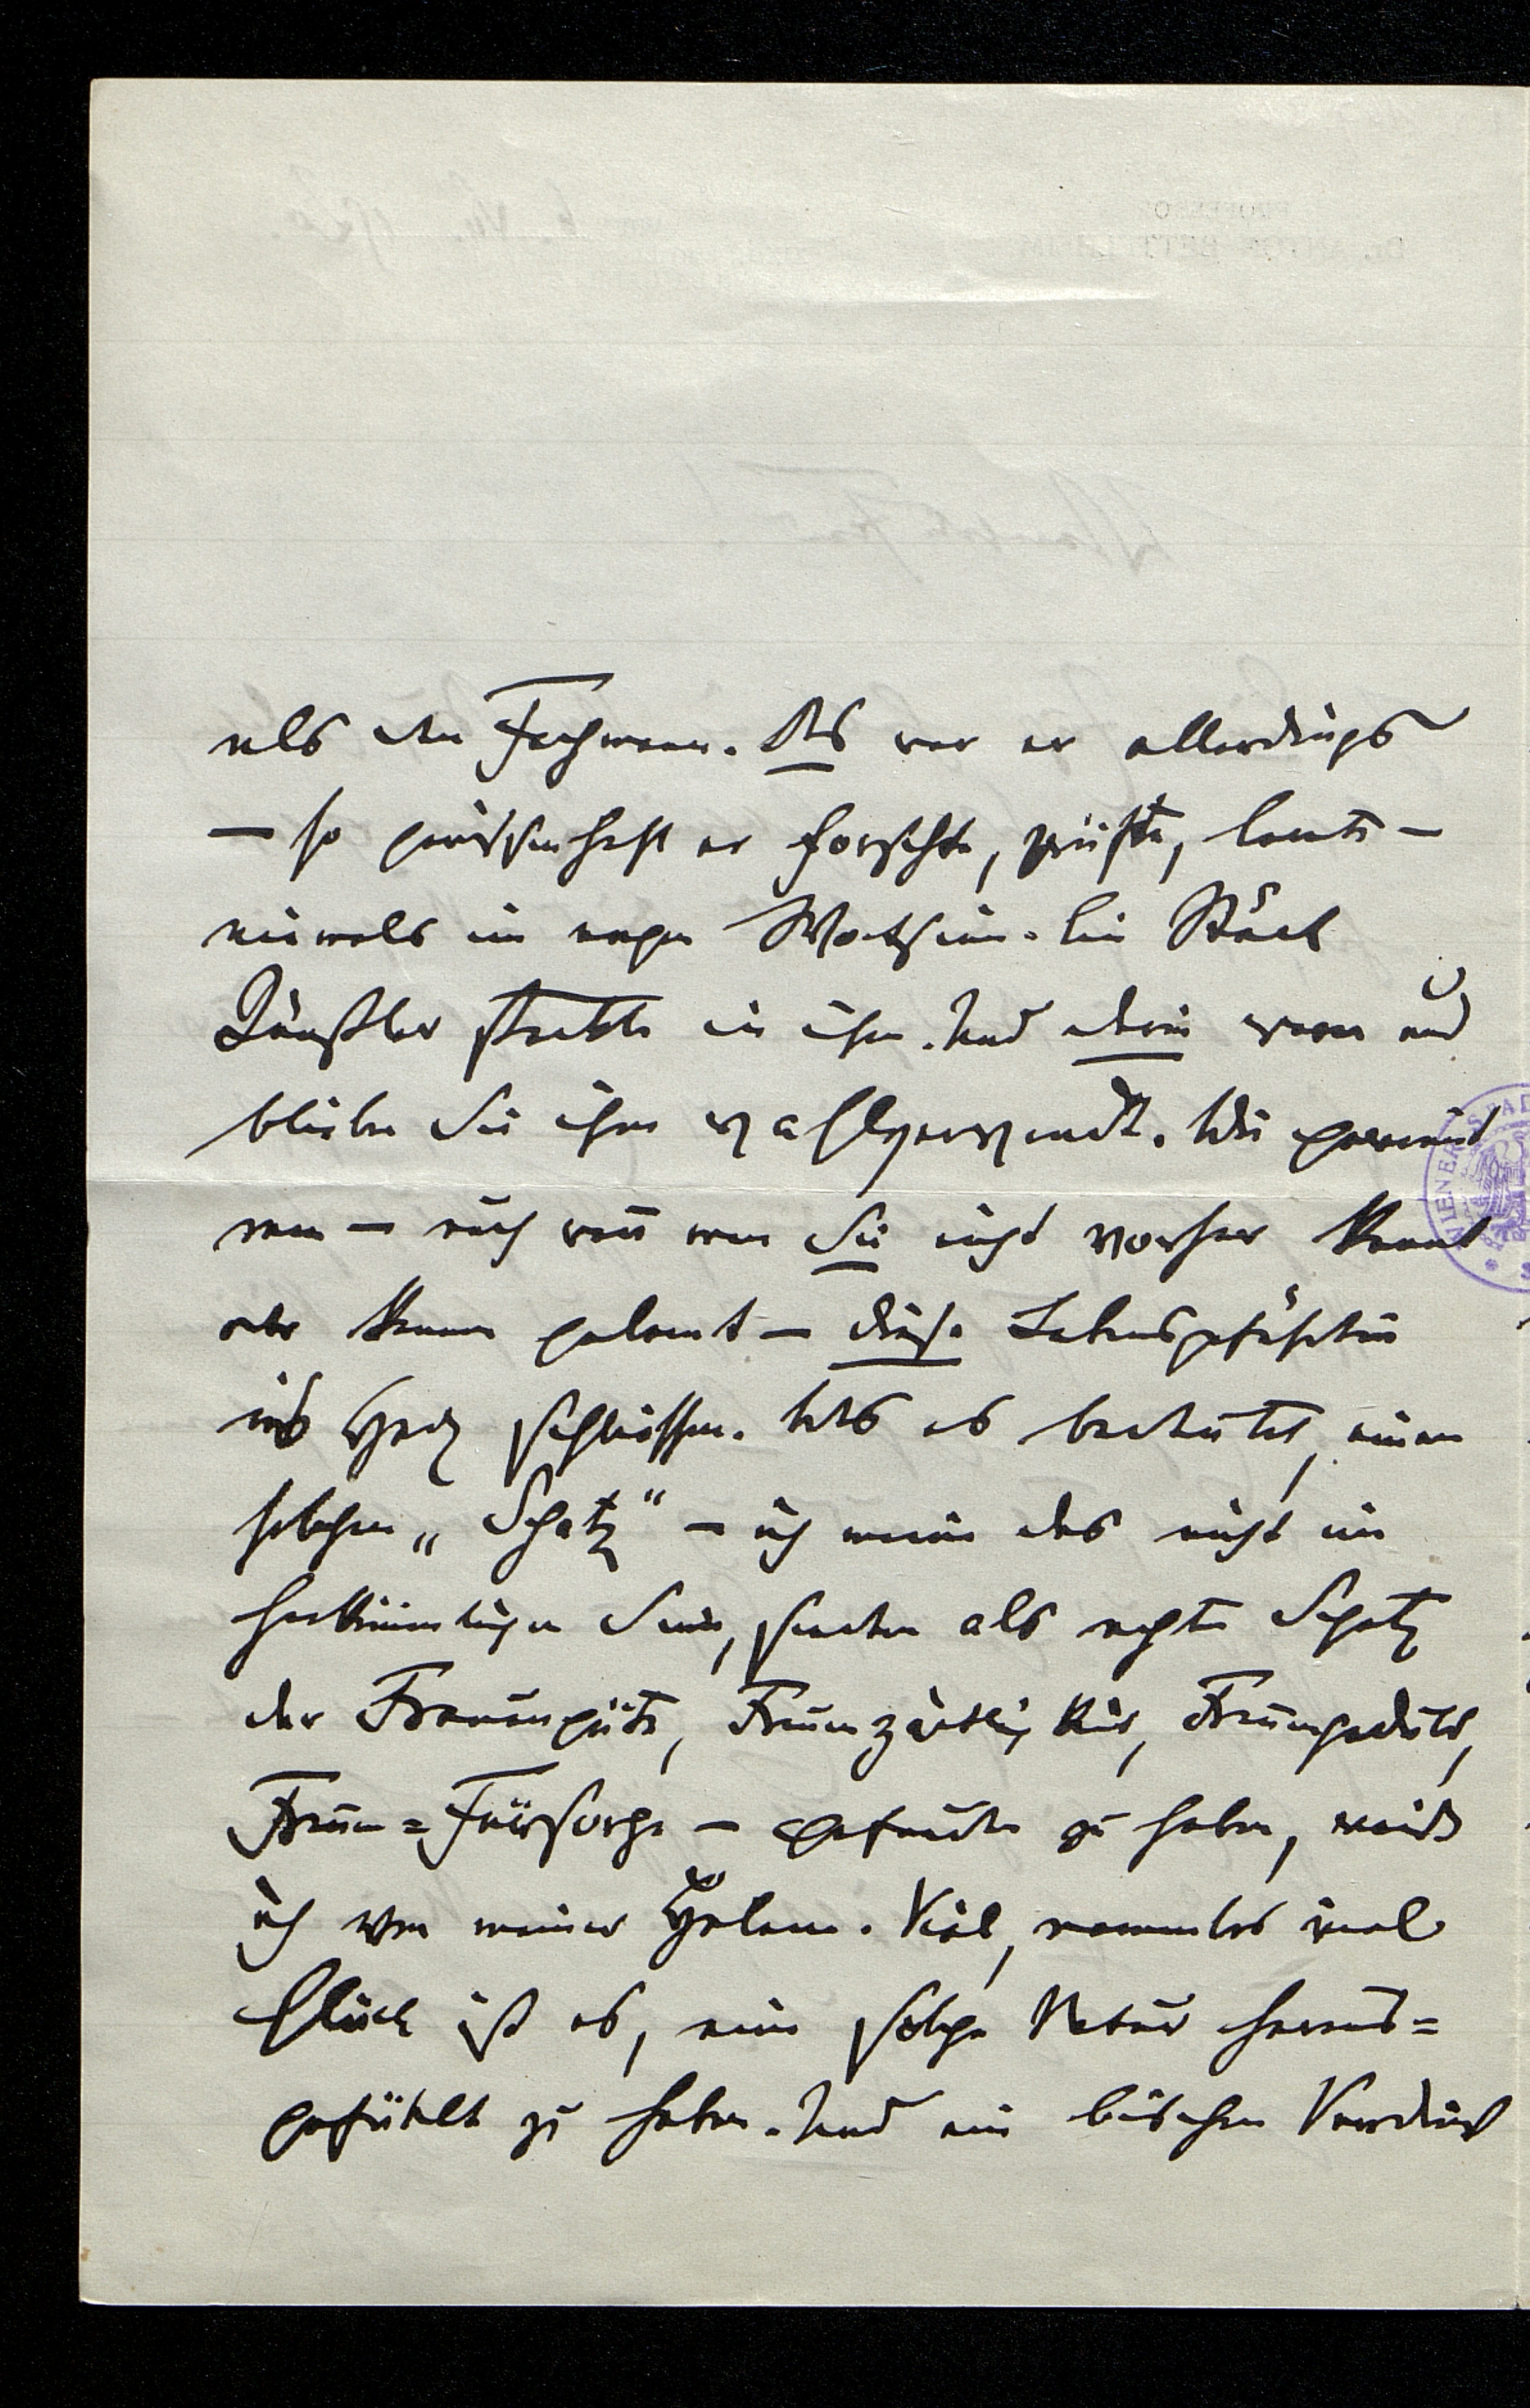 als den Fachmann. Das war er allerdings
– so gewissenhaft er forschte, prüfte, lernte –
niemals im engen Wortsinn. Ein Stück
Künstler steckte in ihm. Und darin waren und
blieben Sie ihm wahlverwandt. Wie gewiß
man – auch wenn man Sie nicht vorher kannt
oder kennen gelernt – diese Lebensgefährtin
ins Herz schließen. Was es bedeutet, einen
solchen „Schatz“ – ich meine das nicht im
herkömmlichen Sinn, sondern als echten Schatz
der Frauengüte, Frauenzärtlichkeit, Frauengeduld,
Frauen=Fürsorge – gefunden zu haben, weiß
ich von meiner Helene. Viel, namenlos viel
Glück ist es, eine solche Natur heraus=
gefühlt zu haben. Und ein bischen Verdienst